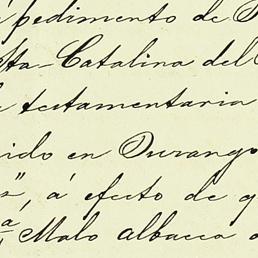 pedimento de
sta Catalina del
testamentaria
ido en Durango
", á efecto de q
Malo albacea